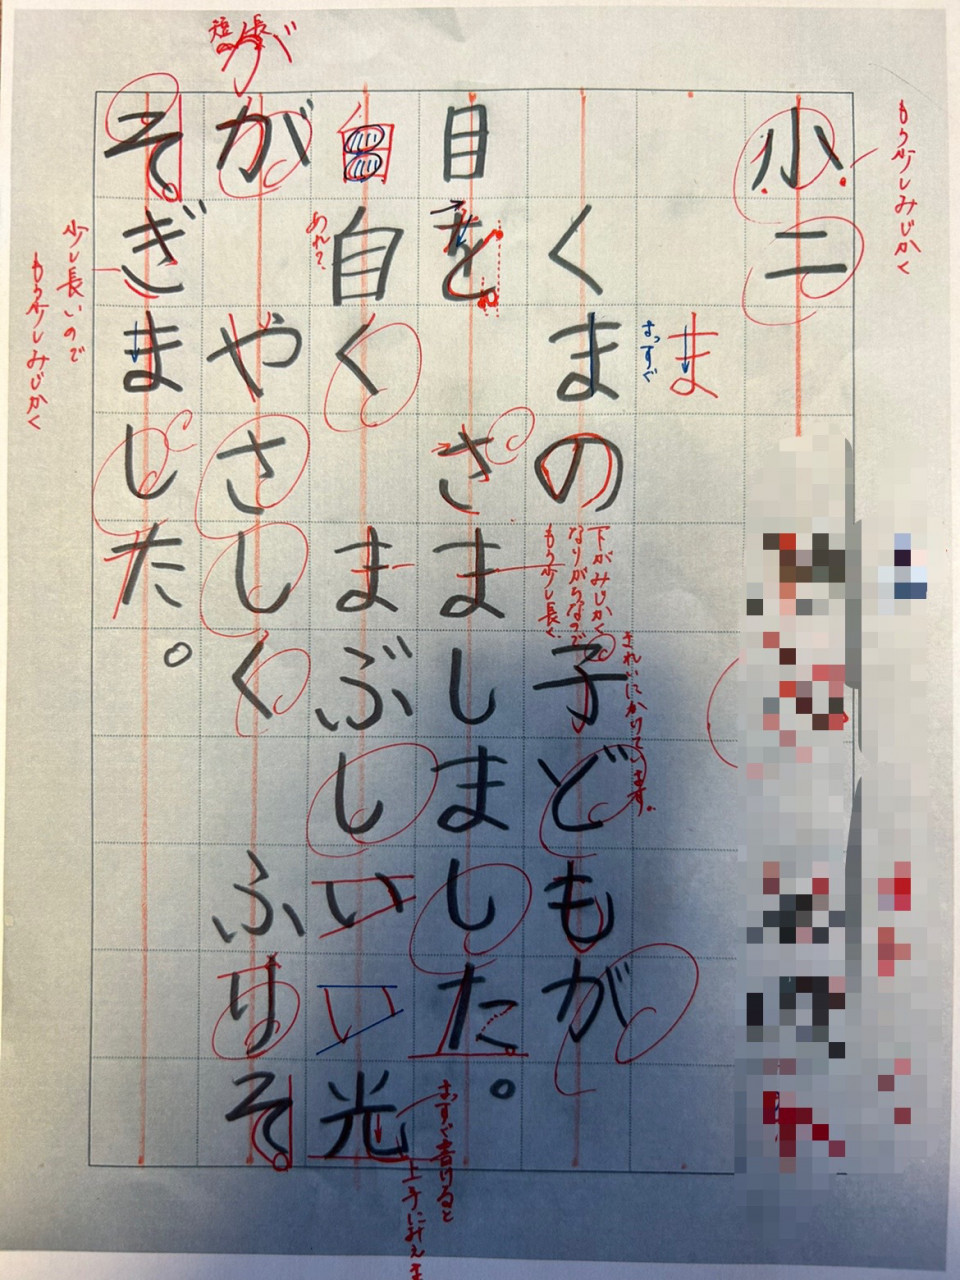 もう少しみじかく
小二
ま
まっすぐ
くまの子どもが
下がみじかく
なりがちなので
もう少し長く
きれいにかけています。
目をさましました。
まっすぐ書けると
上手に
自くまぶしい光
あれ?
がやさしくふりそ
短 長
が
そぎました。
少し長いので
もう少しみじかく